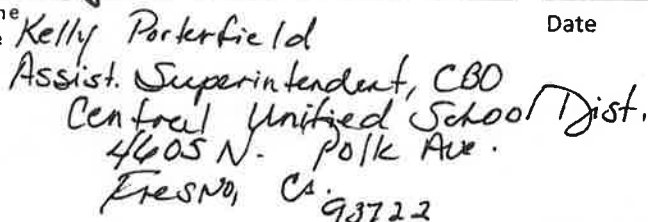 Kelly Porterfield Date
Assist. Superintendent, CBO
Central Unified School Dist.
4605 N. Polk Ave.
Fresno, Ca.
93722